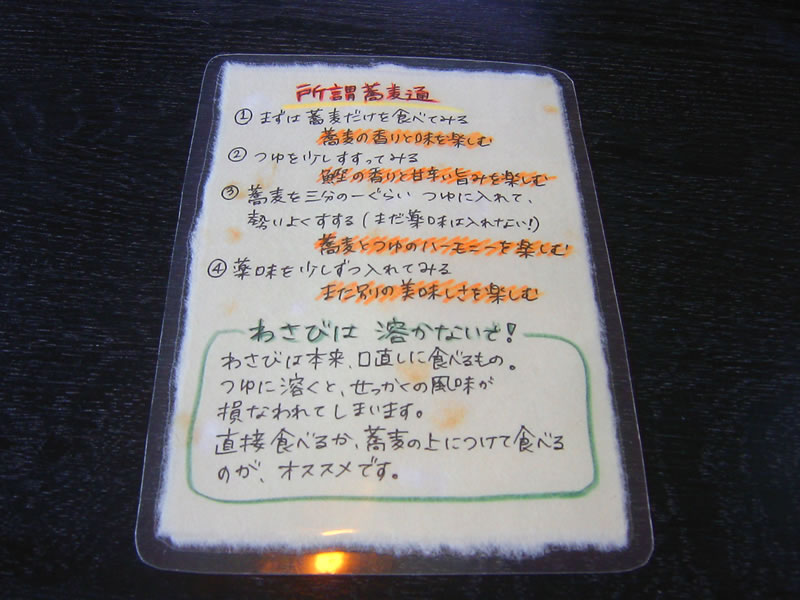 所謂蕎麦通
① まずは蕎麦だけを食べてみる
蕎麦の香りと味を楽しむ
② つゆを少しすすってみる
鰹の香りと甘辛い旨みを楽しむ
③ 蕎麦を三分の一ぐらい つゆに入れて、
勢いよくすする(まだ薬味は入れない!)
蕎麦とつゆのハーモニーを楽しむ
④ 薬味を少しずつ入れてみる
また別の美味しさを楽しむ
わさびは 溶かないで!
わさびは本来、口直しに食べるもの。
つゆに溶くと、せっかくの風味が
損なわれてしまいます。
直接食べるか、蕎麦の上につけて食べる
のが、オススメです。